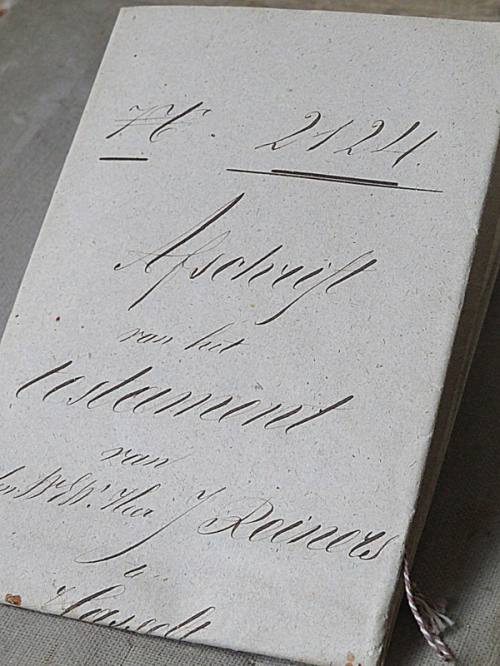 N. 2124
Afschrift
van het
testament
van
den WelEw. Heer J Reiners